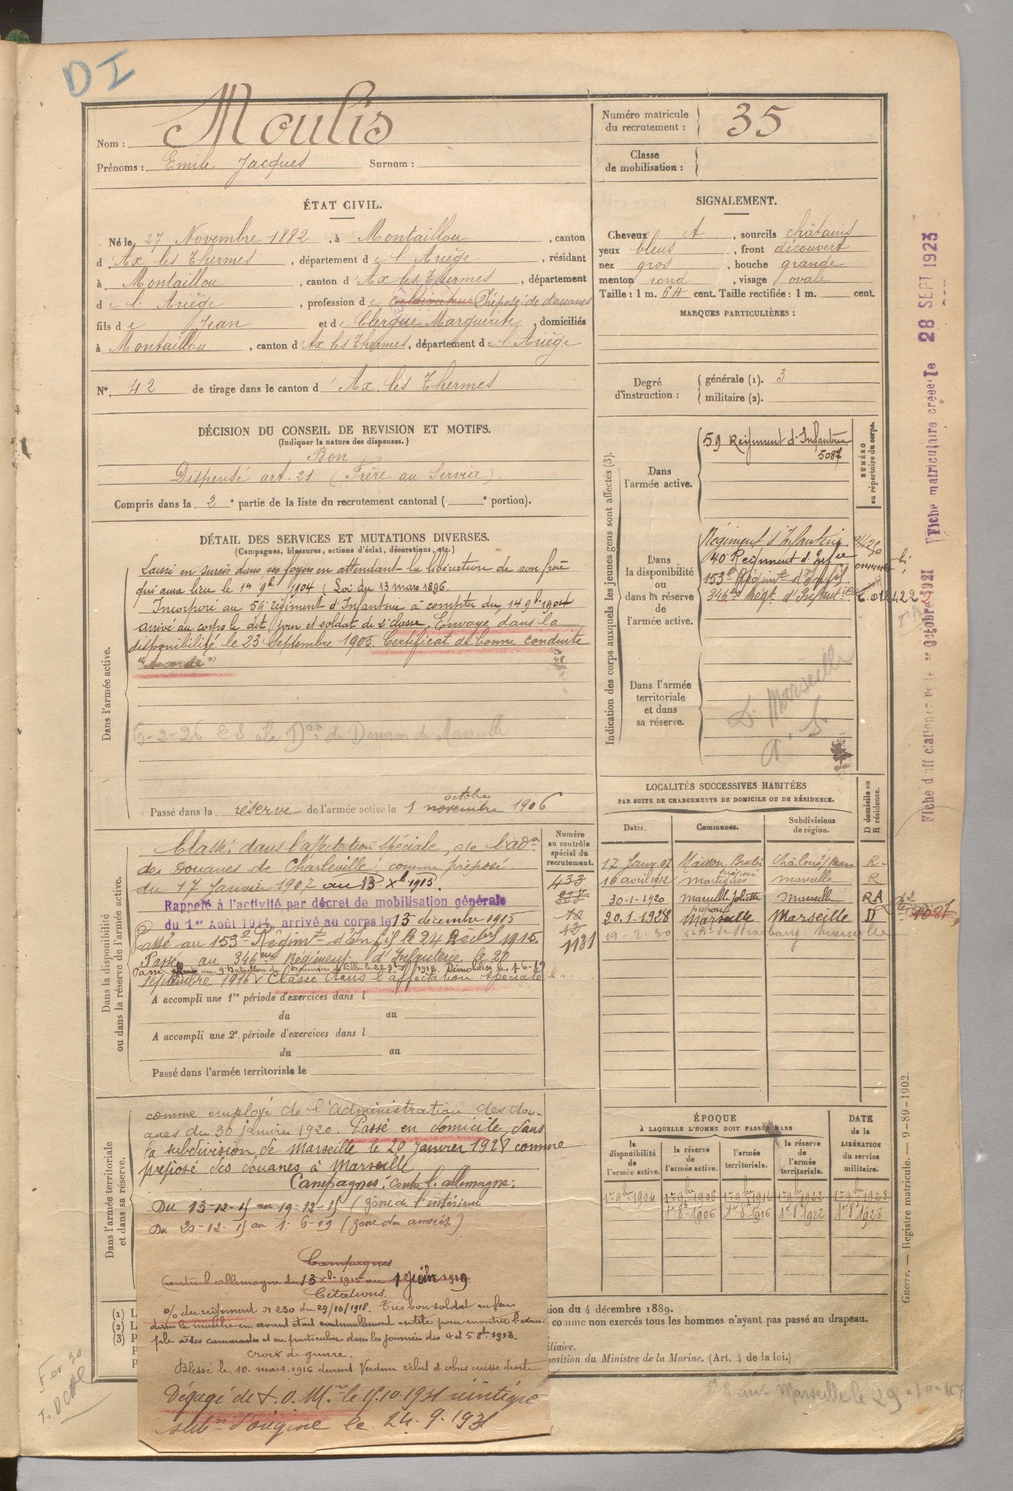 DI
Nom : Moulis
Prénoms : Emile Jacques Surnom :
ÉTAT CIVIL.
Né le 27 Novembre 1882, à Montaillou, canton
d'Ax les Thermes, département de l'Ariège, résidant
à Montaillou, canton d'Ax les Thermes, département
de l'Ariège, profession de cultivateur Préposé de douanes
fils de Jean et de Clergue Marguerite, domiciliés
à Montaillou, canton d'Ax les Thermes, département de l'Ariège
N° 42 de tirage dans le canton d'Ax les Thermes
DÉCISION DU CONSEIL DE REVISION ET MOTIFS.
(Indiquer la nature des dispenses.)
Bon
Dispensé art. 21 (Frère au Service)
Compris dans la 2e partie de la liste du recrutement cantonal ( e portion).
DÉTAIL DES SERVICES ET MUTATIONS DIVERSES.
(Campagnes, blessures, actions d'éclat, décorations, etc.)
Dans l'armée active.
Laissé en sursis dans ses foyers en attendant la libération de son frère
qui aura lieu le 1er 9bre 1904 (Loi du 13 mars 1896
Incorporé au 59e régiment d'Infanterie à compter du 14 9bre 1904
arrivé au corps le dit jour et soldat de 2e classe. Envoyé dans la
disponibilité le 23 septembre 1905. Certificat de bonne conduite
"Accordé"
6-2-26 la Don des Douanes de Marseille
Passé dans la réserve de l'armée active le 1 novembre octobre 1906
Dans la disponibilité
ou dans la réserve de l'armée active.
Numéro
au contrôle
spécial du
recrutement.
Classé dans l'affectation spéciale, de l'adon
des Douanes de Charleville comme préposé
du 17 Janvier 1902 au 13 Xbre 1915.
433
Rappelé à l'activité par décret de mobilisation générale
du 1er Août 1914, arrivé au corps le 13 décembre 1915
Passé au 153e Régimt d'Inf le 24 Décbre 1915.
1131
Passé au 346ème Régiment d'Infanterie le 20
Septembre 1916. Classé dans l'affectation spéciale
A accompli une 1re période d'exercices dans l
du au
A accompli une 2e période d'exercices dans l
du au
Passé dans l'armée territoriale le
Dans l'armée territoriale
et dans sa réserve.
comme employé de l'administration des dou-
anes du 30 janvier 1920. Passé en domicile dans
la subdivision de Marseille le 20 Janvier 1928 comme
préposé des douanes à Marseille
Campagnes: Contre l'allemagne:
Du 13-12-15 au 19-12-15 (zône de l'intérieur
Du 20-12-15 au 1-6-19 (zône des armées)
Campagnes
Contre l'allemagne du 13 Xbre 1915 au 1 Juin 1919
Citations.
O/ du régiment N° 230 du 29/10/1918. Très bon soldat au feu
ses camarades et en particulier dans les journées des 4 et 5 8bre 1918.
Croix de guerre.
Blessé le 10 mars 1916 devant Verdun éclat d'obus cuisse droite
Dégagé de l'. O. M. le 1-10-1931 réintégré
subon d'origine le 24.9.1931
Numéro matricule
du recrutement : 35
Classe
de mobilisation :
SIGNALEMENT.
Cheveux et, sourcils châtains
yeux bleus, front découvert
nez gros, bouche grande
menton rond, visage ovale
Taille : 1 m. 64 cent. Taille rectifiée : 1 m. cent.
MARQUES PARTICULIÈRES :
Degré
d'instruction :
générale (1). 3
militaire (2).
Indication des corps auxquels les jeunes gens sont affectés (3).
NUMÉRO
au répertoire du corps.
Dans
l'armée active.
59 Régiment d'Infanterie
5087
Dans
la disponibilité
ou
dans la réserve
de
l'armée active.
Régiment d'Infanterie
40 Régiment d'Infie
153e Régimt d'Inf
346e Régt d'Infanterie
Dans l'armée
territoriale
et dans
sa réserve.
D. Marseille
LOCALITÉS SUCCESSIVES HABITÉES
PAR SUITE DE CHANGEMENTS DE DOMICILE OU DE RÉSIDENCE.
Dates. Communes. Subdivisions
de région. D domicile ou
R résidence.
17 Janv. 07 R
16 avril 1912 Martigues Marseille R
30-1-1920 Marseille Joliette Marseille RA
20.1.1928 Marseille Marseille D
19-2-30
ÉPOQUE
À LAQUELLE L'HOMME DOIT PASSER DANS
la
disponibilité
de
l'armée active.
la réserve
de
l'armée active.
l'armée
territoriale.
la réserve
de
l'armée
territoriale.
DATE
de la
LIBÉRATION
du service
militaire.
1er 9bre 1904 1er 9bre 1906 1er 9bre 1916 1er 9bre 1922 1er 9bre 1928
1er 8bre 1906 1er 8bre 1916 1er 8bre 1922 1er 8bre 1928
(1) L
(2) L
(3) P
tion du 4 décembre 1889.
comme non exercés tous les hommes n'ayant pas passé au drapeau.
iliaire.
position du Ministre de la Marine. (Art. 4 de la loi.)
Fiche matriculaire créée le 28 SEPT 1923
Guerre. — Registre matricule. — 9-89-1902.
Marseille le 29